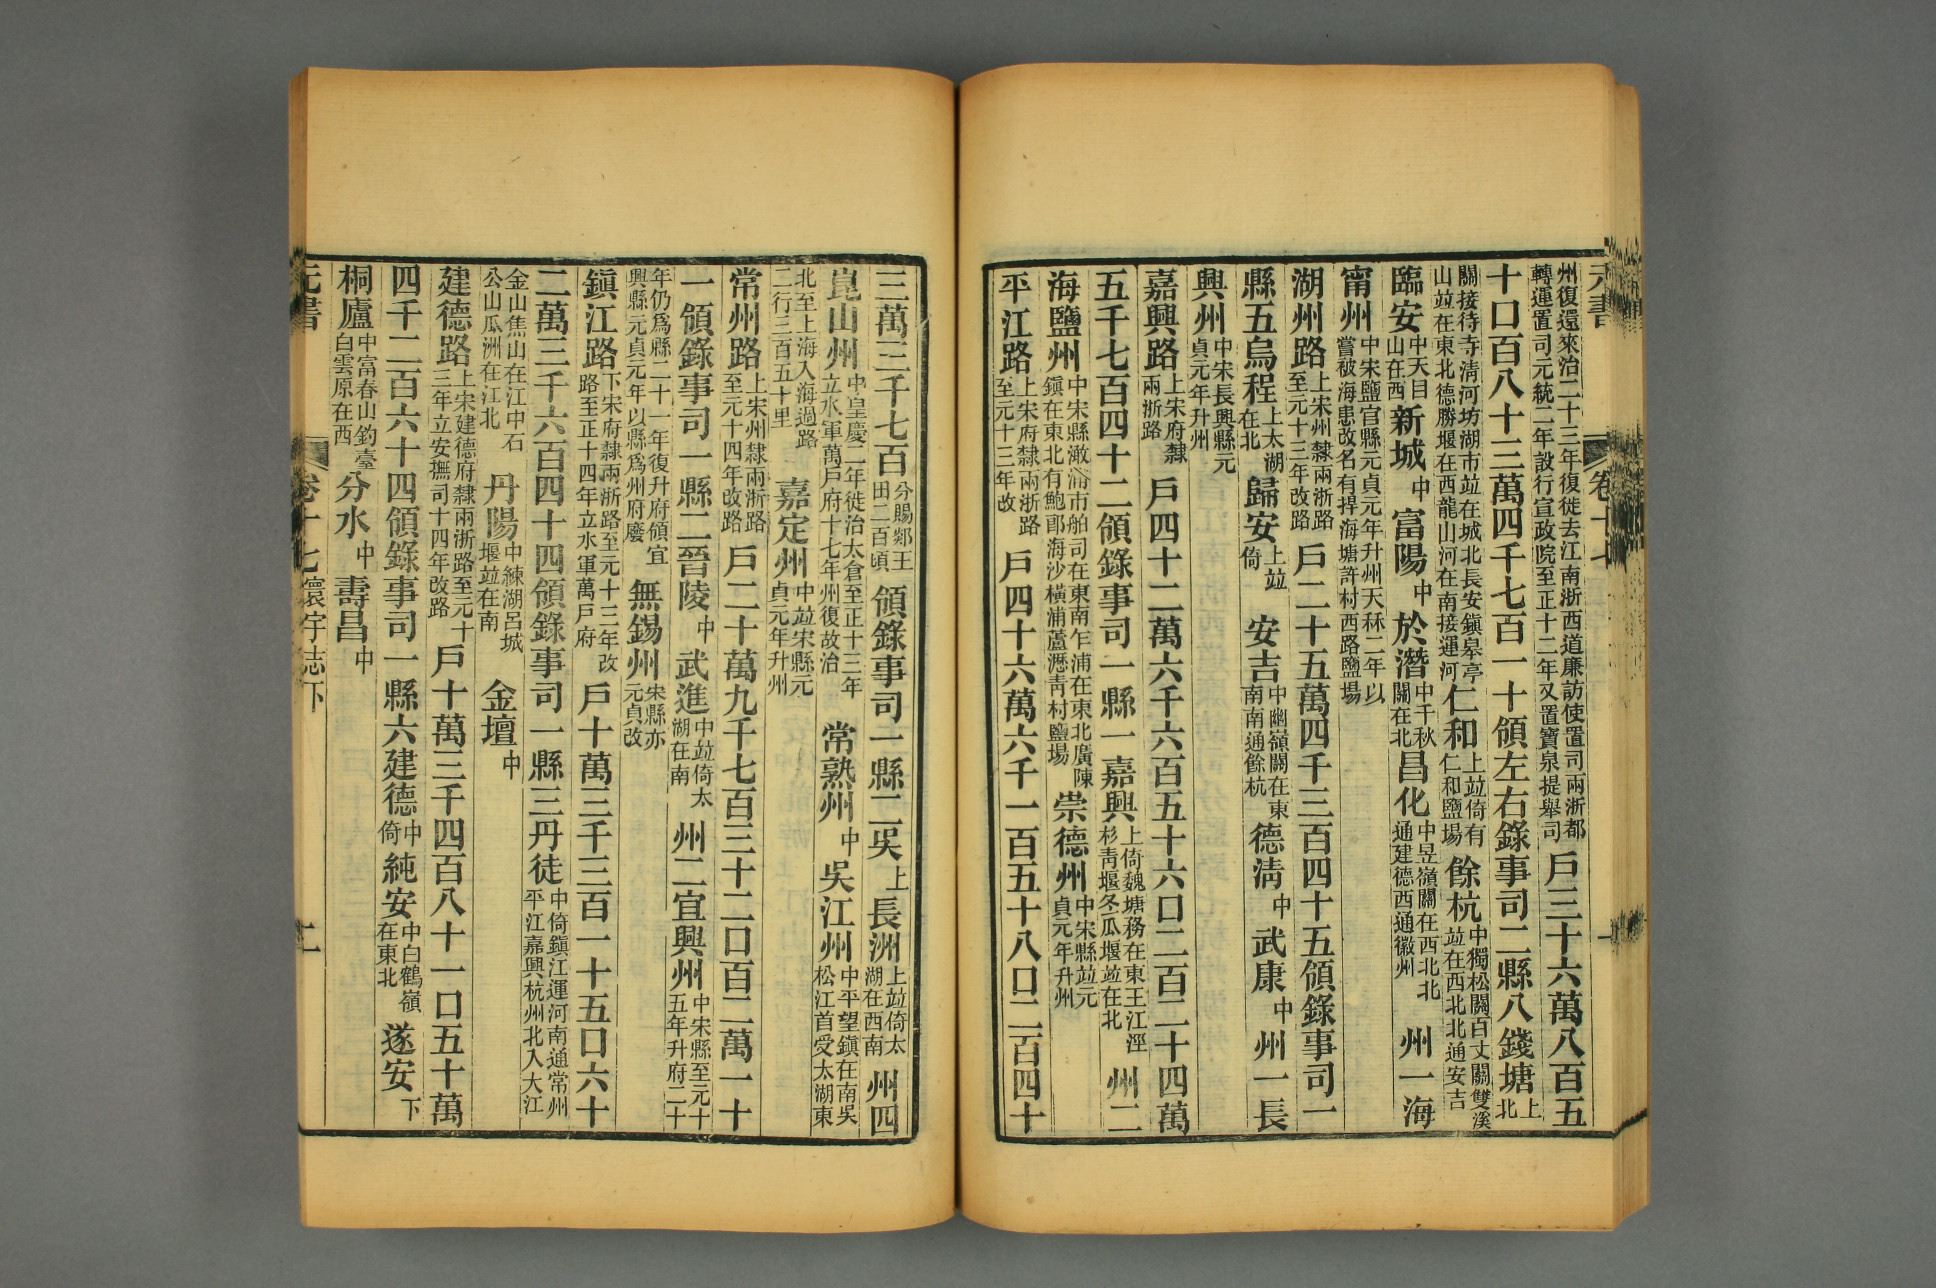 州復還來治二十三年復徙去江南浙西道廉訪使置司兩浙都
轉運置司元統二年設行宣政院至正十二年又置寶泉提舉司
戶三十六萬八百五
十口百八十三萬四千七百一十領左右錄事司二縣八錢塘上北
關接待寺淸河坊湖市竝在城北長安鎭皋亭
山竝在東北德勝堰在西龍山河在南接運河
仁和上竝倚有仁和鹽場
餘杭中獨松關百丈關雙溪竝在西北北通安吉
臨安中天目山在西
新城中
富陽中
於潛中千秋關在北
昌化中昱嶺關在西北北通建德西通徽州
州一海
甯州中宋鹽官縣元貞元年升州天秝二年以嘗被海患改名有捍海塘許村西路鹽場
湖州路上宋州隸兩浙路至元十三年改路
戶二十五萬四千三百四十五領錄事司一
縣五烏程上太湖在北
歸安上竝倚
安吉中幽嶺關在東南南通餘杭
德淸中
武康中
州一長
興州中宋長興縣元貞元年升州
嘉興路上宋府隸兩浙路
戶四十二萬六千六百五十六口二百二十四萬
五千七百四十二領錄事司一縣一嘉興上倚魏塘務在東王江涇杉靑堰冬瓜堰竝在北
州二
海鹽州中宋縣澉浦市舶司在東南乍浦在東北廣陳鎭在東北有鮑郞海沙橫浦蘆瀝靑村鹽場
崇德州中宋縣竝元貞元年升州
平江路上宋府隸兩浙路至元十三年改
戶四十六萬六千一百五十八口二百四十
三萬三千七百分賜郯王田二百頃
領錄事司一縣二吳上
長洲上竝倚太湖在西南
州四
崑山州中皇慶二年徙治太倉至正十三年立水軍萬戶府十七年州復故治
常熟州中
吳江州中平望鎭在南吳松江首受太湖東
北至上海入海過路二行三百五十里
嘉定州中竝宋縣元貞元年升州
常州路上宋州隸兩浙路至元十四年改路
戶二十萬九千七百三十二口百二萬一十
一領錄事司一縣二晉陵中
武進中竝倚太湖在南
州二宜興州中宋縣至元十五年升府二十
年仍爲縣二十一年復升府領宜興縣元貞元年以縣爲州府廢
無錫州宋縣亦元貞改
鎭江路下宋府隸兩浙路至元十三年改路至正十四年立水軍萬戶府
戶十萬三千三百一十五口六十
二萬三千六百四十四領錄事司一縣三丹徒中倚鎭江運河南通常州平江嘉興杭州北入大江
金山焦山在江中石公山瓜洲在江北
丹陽中練湖呂城堰竝在南
金壇中
建德路上宋建德府隸兩浙路至元十三年立安撫司十四年改路
戶十萬三千四百八十一口五十萬
四千二百六十四領錄事司一縣六建德中倚
純安中白鶴嶺在東北
遂安下
桐廬中富春山釣臺白雲原在西
分水中
壽昌中
元書
卷十七 寰宇志下
二